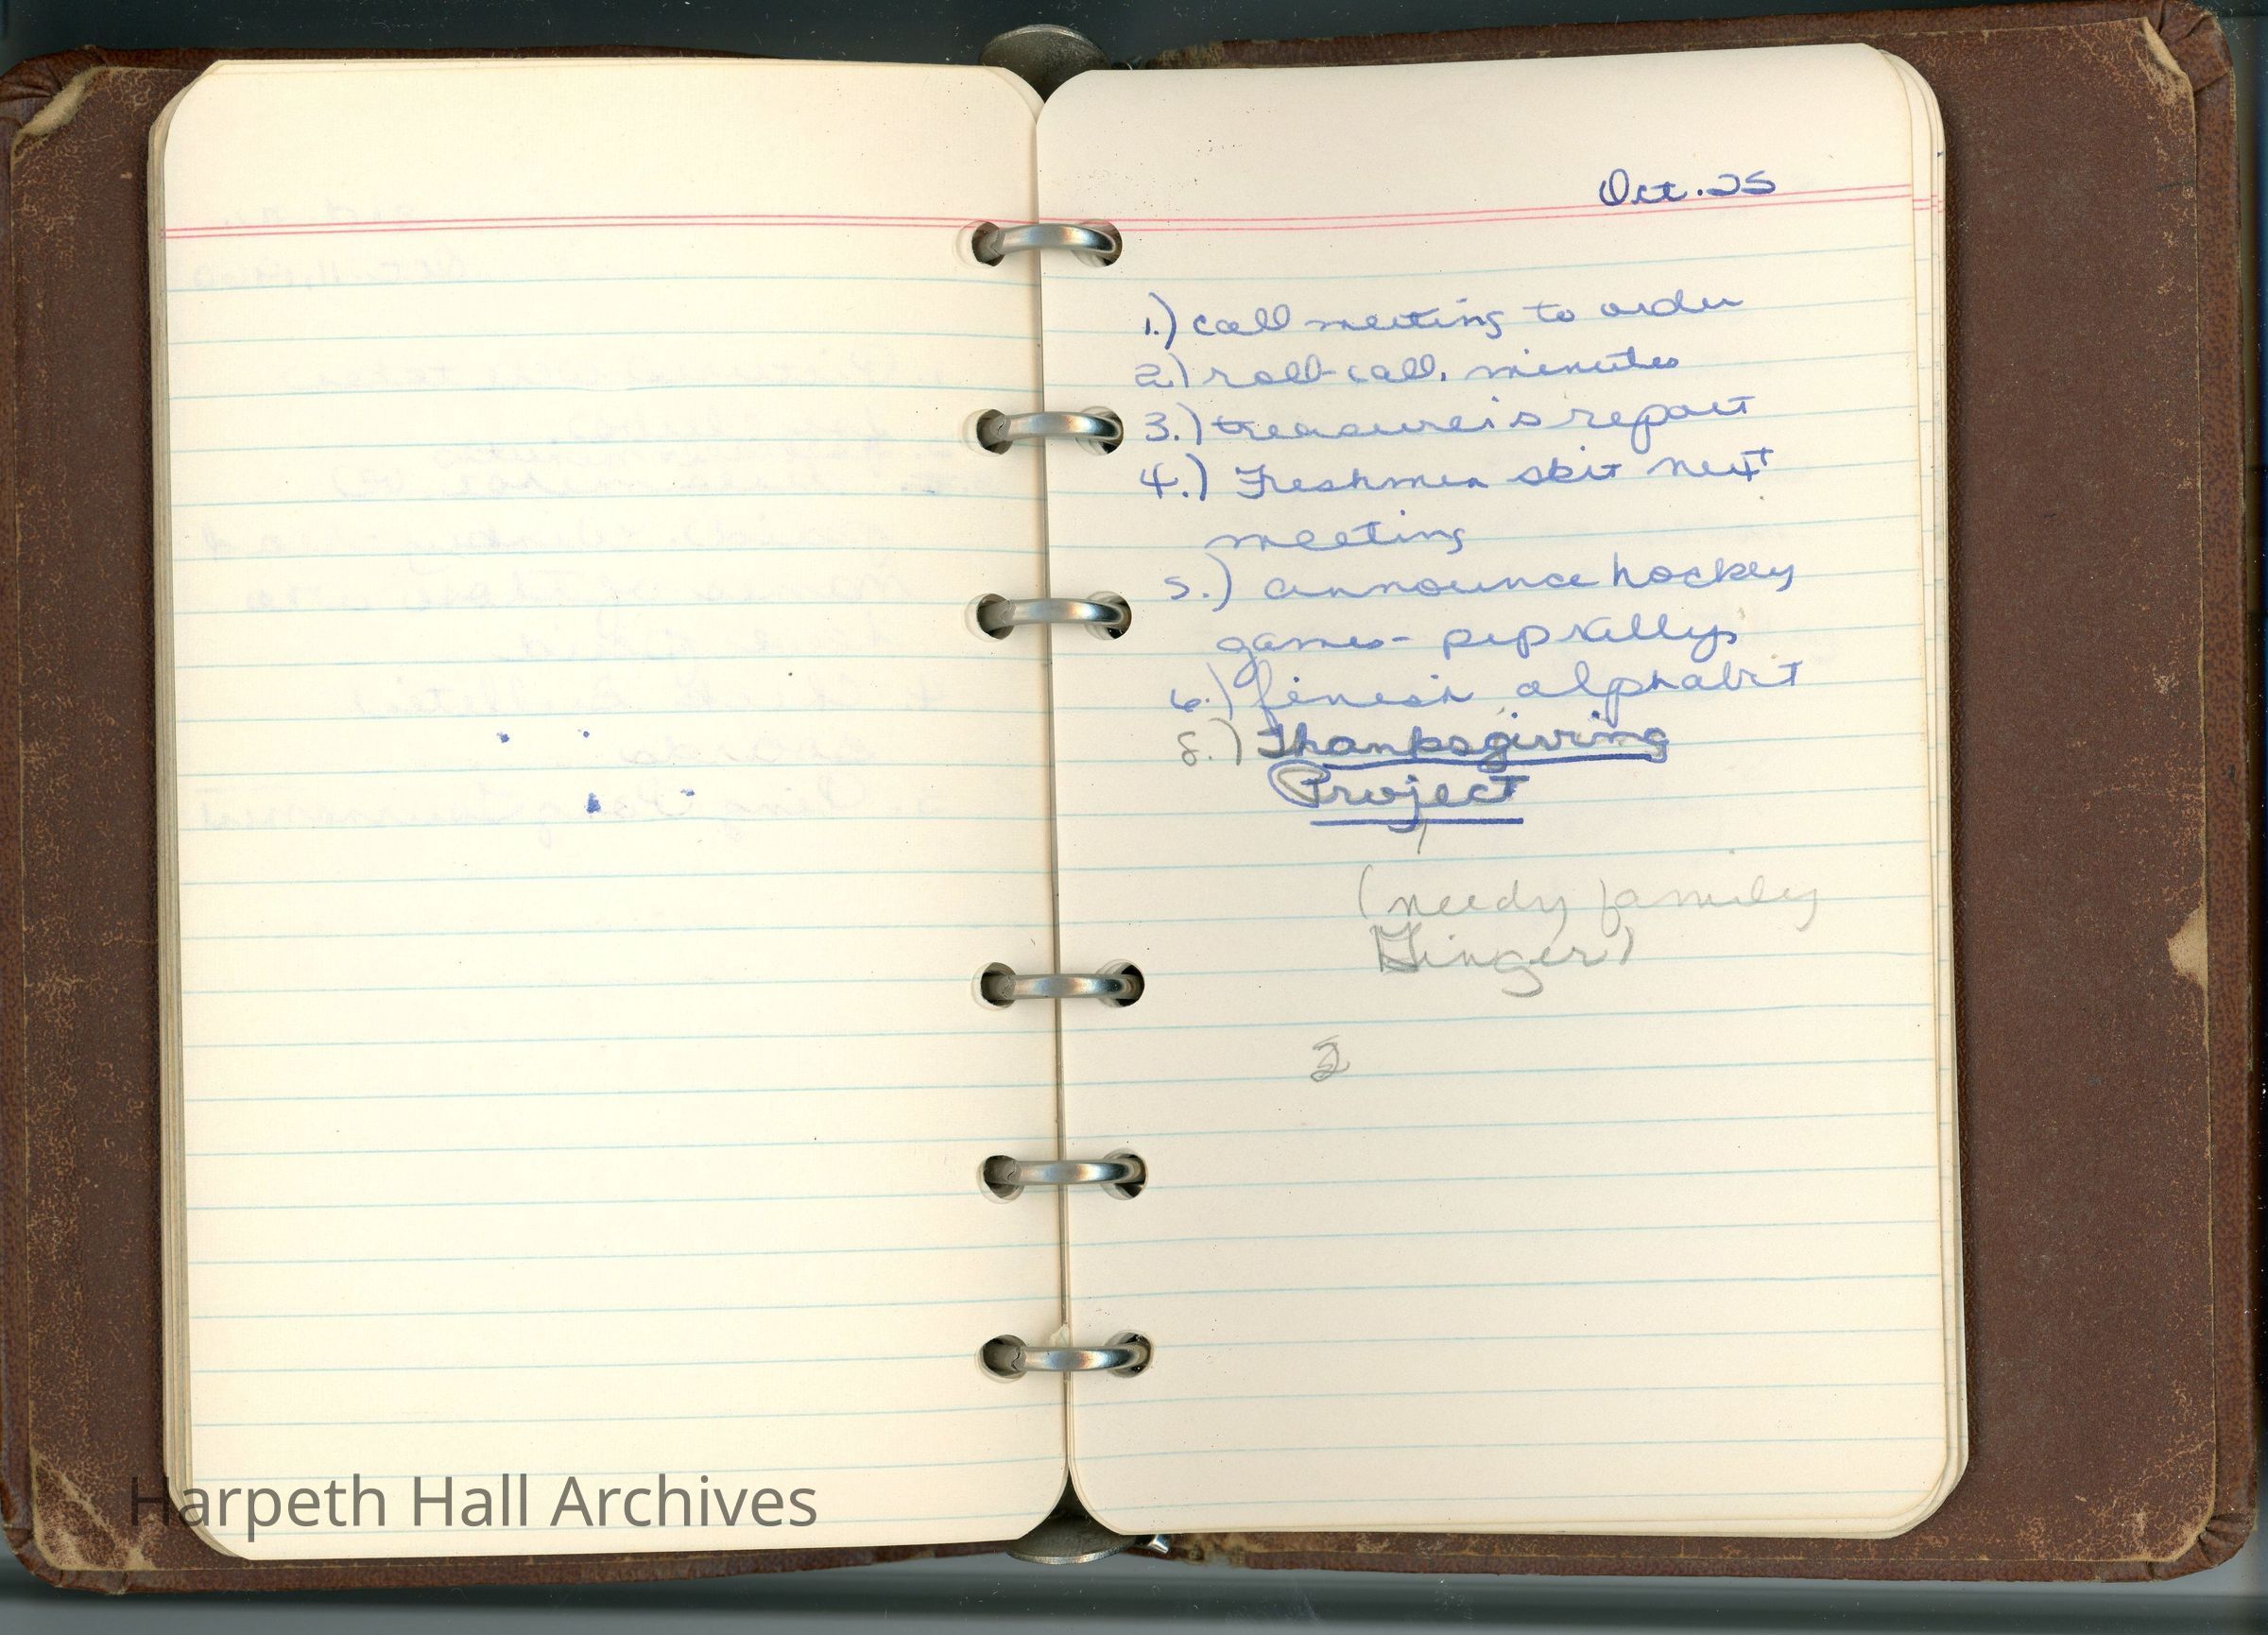 Oct. 25
1.) call meeting to order
2) roll-call, minutes
3.) treasurer's report
4.) Freshmen skit next
meeting
5.) announce hockey
games - pep rallys
6.) finish alphabit
8.) Thanksgiving
Project
(needy family
Ginger)
Harpeth Hall Archives